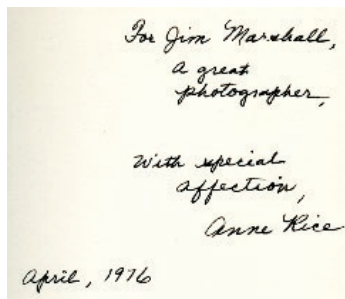 For Jim Marshall,
a great
photographer,
With special
affection,
Anne Rice
April, 1976